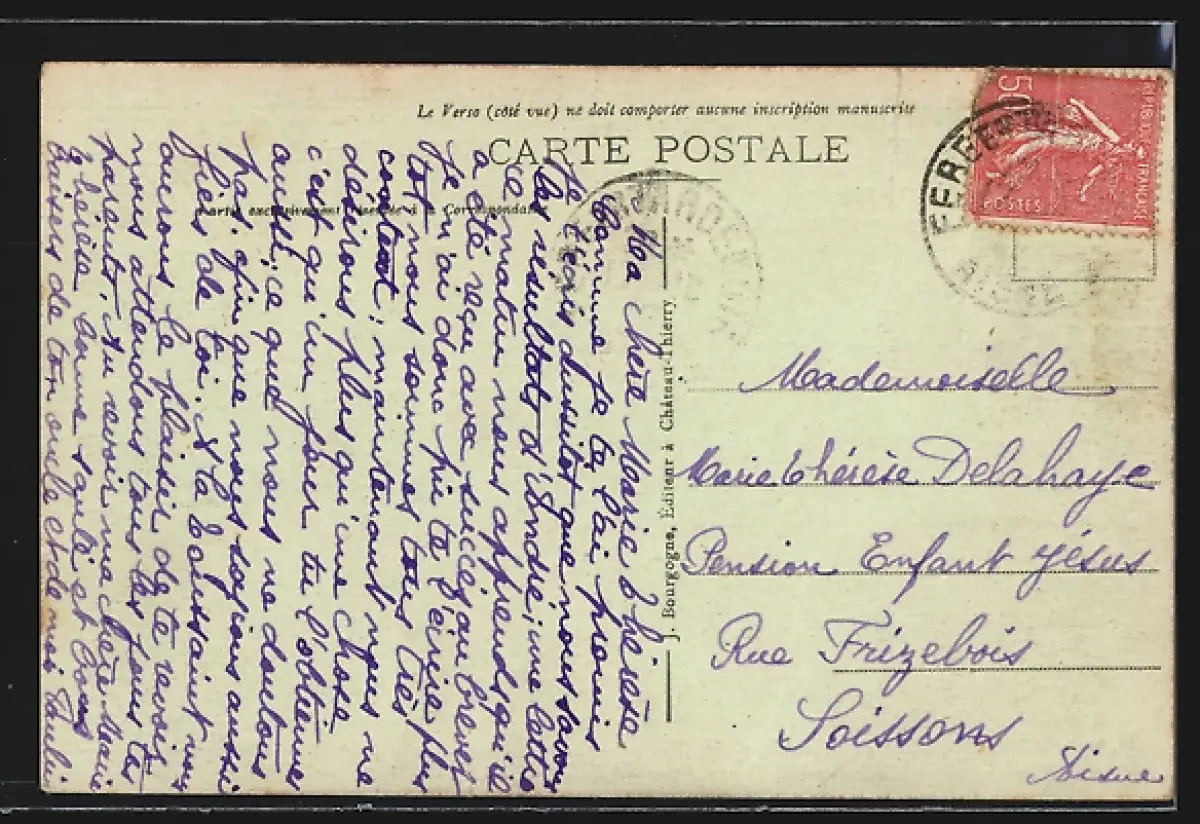 Le Verso (côté vue) ne doit comporter aucune inscription manuscrite
CARTE POSTALE
Partie exclusivement réservée à la Correspondance
J. Bourgogne, Éditeur à Château-Thierry
50
POSTES
FRANÇAISE
Mademoiselle
Marie Thérèse Delahaye
Pension Enfant Jésus
Rue Frizebois
Soissons
Aisne
Ma chère Marie Thérèse
Comme je te l'ai promis
je t'écris aussitôt que nous savons
les résultats d'André; une lettre
ce matin nous apprend qu'il
a été reçu avec succès au brevet
je n'ai donc pu t'écrire plus
tôt nous sommes tous très
content; maintenant nous ne
désirons plus qu'une chose
c'est qu'un jour tu l'obtiennes
aussi, ce que nous ne doutons
pas, afin que nous soyons aussi
fiers de toi. A la Toussaint nous
aurons le plaisir de te revoir
nous attendons tous les jours tes
parents. Au revoir ma chère Marie
Thérèse, bonne santé et bons
baisers de ton oncle et de moi